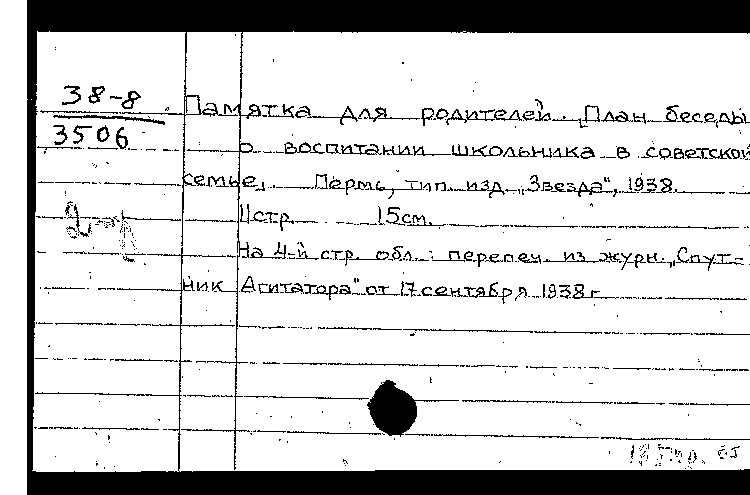 38-8
3506
Памятка для родителей. [План беседы
о воспитании школьника в советской
семье]. Пермь, тип. изд. „Звезда", 1938.
11стр. 15см.
На 4-й стр. обл.: перепеч. из журн. „Спут-
ник Агитатора" от 17 сентября 1938 г